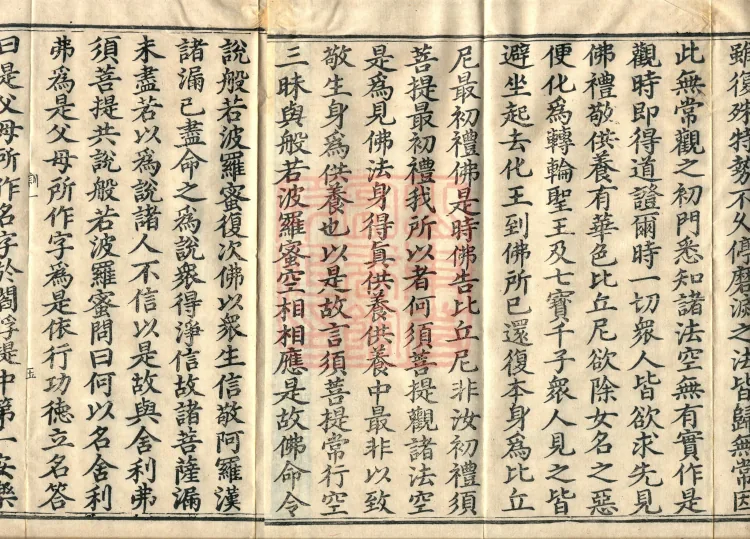 雖復殊特勢不久停磨滅之法皆歸無常因
此無常觀之初門悉知諸法空無有實作是
觀時即得道證爾時一切衆人皆欲求先見
佛禮敬供養有華色比丘尼欲除女名之惡
便化爲轉輪聖王及七寶千子衆人見之皆
避坐起去化王到佛所已還復本身爲比丘
尼最初禮佛是時佛告比丘尼非汝初禮須
菩提最初禮我所以者何須菩提觀諸法空
是爲見佛法身得真供養供養中最非以致
敬生身爲供養也以是故言須菩提常行空
三昧與般若波羅蜜空相相應是故佛命令
說般若波羅蜜復次佛以衆生信敬阿羅漢
諸漏已盡命之爲說衆得淨信故諸菩薩漏
未盡若以爲說諸人不信以是故與舍利弗
須菩提共說般若波羅蜜問曰何以名舍利
弗爲是父母所作字爲是依行功德立名答
訓一
五
曰是父母所作名字於閻浮提中第一安樂